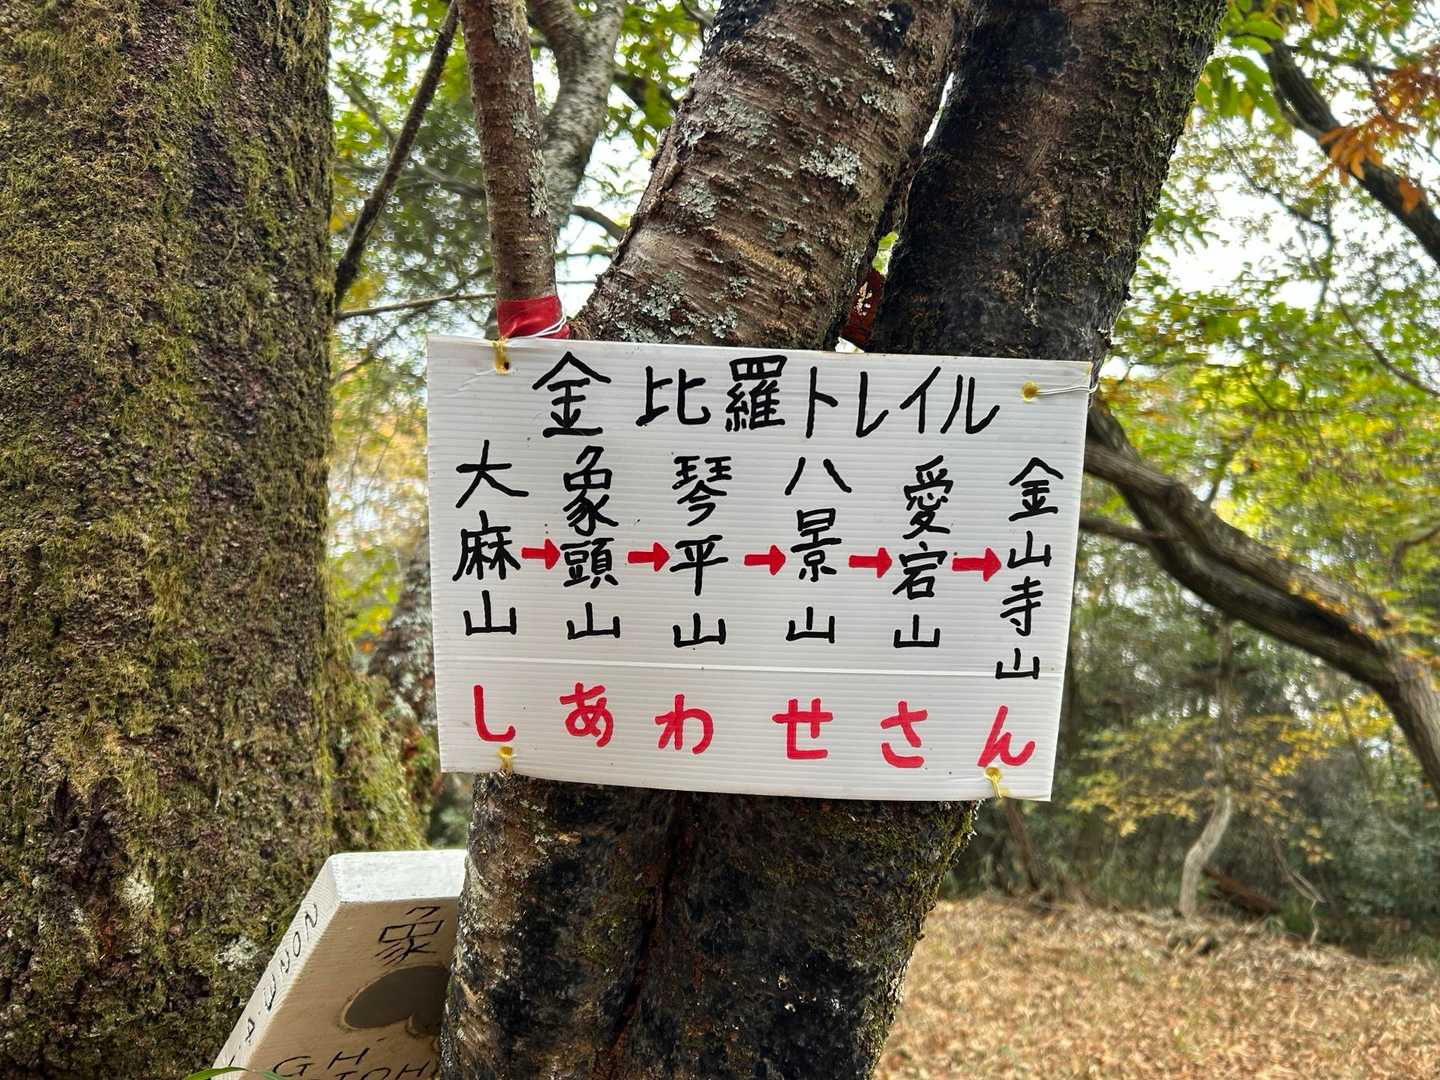 金比羅トレイル
大麻山→象頭山→琴平山→八景山→愛宕山→金山寺山
しあわせさん
象